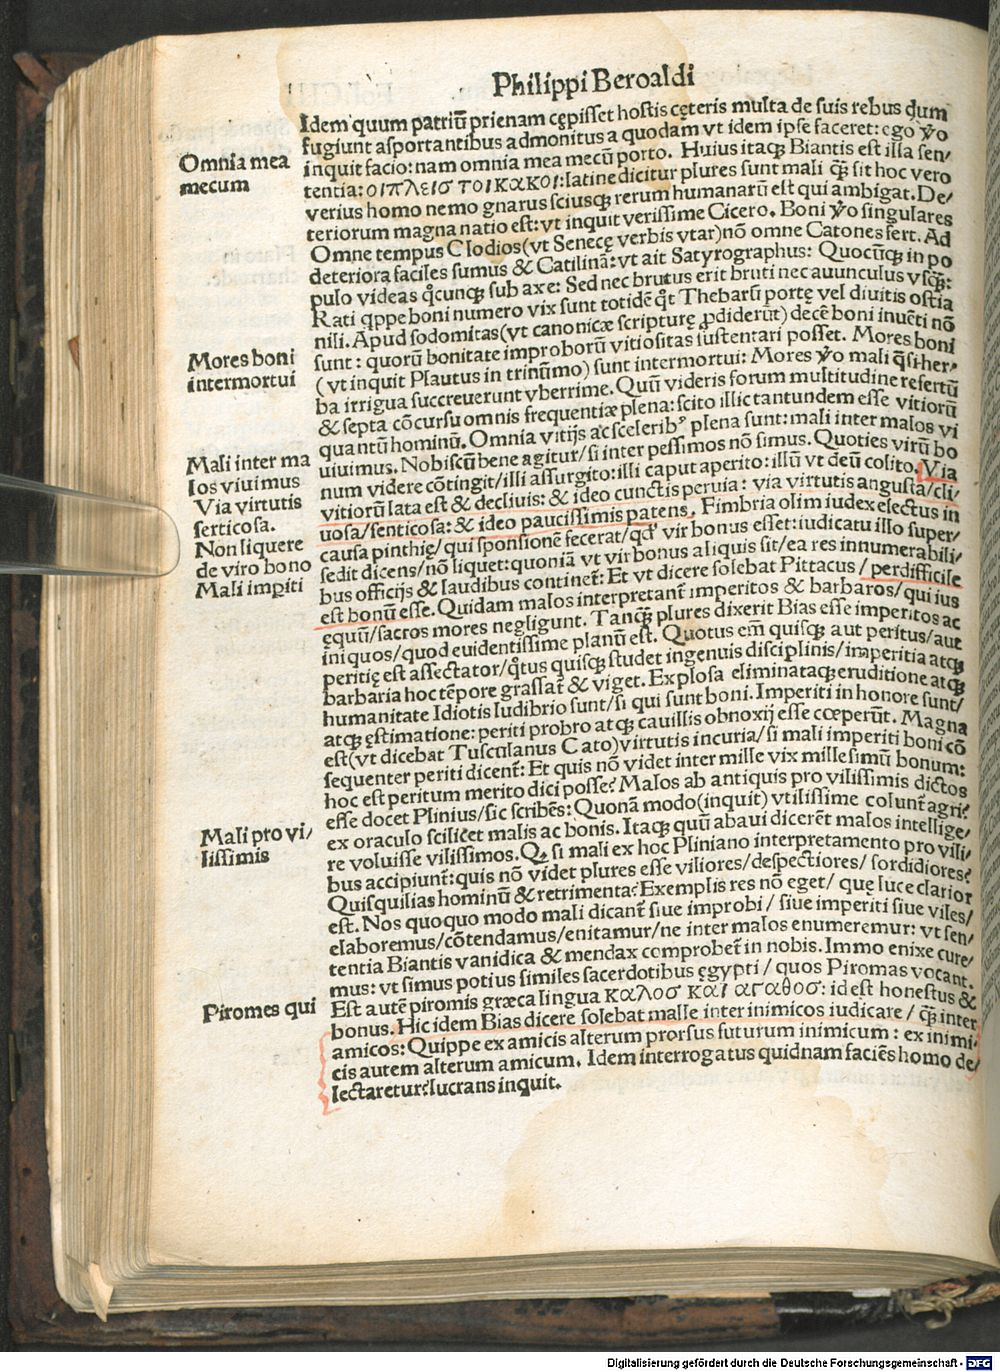 Philippi Beroaldi
Idem quum patriū prienam cępisset hostis cęteris multa de suis rebus dum
fugiunt asportantibus admonitus a quodam vt idem ipse faceret: ego ṽo
inquit facio: nam omnia mea mecū porto. Huius itaqꝫ Biantis est illa sen/
tentia: οιπλεισ τοικακοι: latine dicitur plures sunt mali q̄ꝫ sit hoc vero
verius homo nemo gnarus sciusqꝫ rerum humanarū est qui ambigat. De/
teriorum magna natio est: vt inquit verissime Cicero. Boni ṽo singulares
Omne tempus Clodios (vt Senecę verbis vtar) nō omne Catones fert. Ad
deteriora faciles sumus & Catilinā: vt ait Satyrographus: Quocūqꝫ in po
pulo videas q̊cunqꝫ sub axe: Sed nec brutus erit bruti nec auunculus vsq̄ꝫ:
Rati q̇ppe boni numero vix sunt totidē q̊t Thebarū portę vel diuitis ostia
nili. Apud sodomitas (vt canonicæ scripturę ꝓdiderūt) decē boni inuēti nō
sunt: quorū bonitate improborū vitiositas iustentari posset. Mores boni
(vt inquit Plautus in trinūmo) sunt intermortui: Mores ṽo mali q̄si her/
ba irrigua succreuerunt vberrime. Quū videris forum multitudine refertū
& septa cōcursu omnis frequentiæ plena: scito illic tantundem esse vitiorū
quantū hominū. Omnia vitijs ac scelerib⁹ plena sunt: mali inter malos vi
uiuimus. Nobiscū bene agitur/ si inter pessimos nō simus. Quoties virū bo
num videre cōtingit/ illi assurgito: illi caput aperito: illū vt deū colito. Via
vitiorū lata est & decliuis: & ideo cunctis peruia: via virtutis angusta/ cli/
uosa/ senticosa: & ideo paucissimis patens. Fimbria olim iudex electus in
causa pinthię/ qui sponsionē fecerat/ qd' vir bonus esset: iudicatu illo super/
sedit dicens/ nō liquet: quoniā vt vir bonus aliquis sit/ ea res innumerabili/
bus officijs & laudibus continet̄: Et vt dicere solebat Pittacus/ perdifficile
est bonū esse. Quidam malos interpretant̄ imperitos & barbaros/ qui ius
ęquū/ sacros mores negligunt. Tanq̄ꝫ plures dixerit Bias esse imperitos ac
iniquos/ quod euidentissime planū est. Quotus em̄ quisqꝫ aut peritus/ aut
peritię est assectator/ q̊tus quisqꝫ studet ingenuis disciplinis/ imperitia atqꝫ
barbaria hoc tēpore grassat̄ & viget. Explosa eliminataqꝫ eruditione atqꝫ
humanitate Idiotis ludibrio sunt/ si qui sunt boni. Imperiti in honore sunt/
atqꝫ ęstimatione: periti probro atqꝫ cauillis obnoxij esse cœperūt. Magna
est (vt dicebat Tusculanus Cato) virtutis incuria/ si mali imperiti boni cō
sequenter periti dicent̄: Et quis nō videt inter mille vix millesimū bonum:
hoc est peritum merito dici posse? Malos ab antiquis pro vilissimis dictos
esse docet Plinius/ sic scribēs: Quonā modo (inquit) vtilissime colunt̄ agri?
ex oraculo scilicet malis ac bonis. Itaqꝫ quū abaui dicerēt malos intellige/
re voluisse vilissimos. Qꝫ si mali ex hoc Pliniano interpretamento pro vili/
bus accipiunt̄: quis nō videt plures esse viliores/ despectiores/ sordidiores?
Quisquilias hominū & retrimenta? Exemplis res nō eget/ quę luce clarior
est. Nos quoquo modo mali dicant̄ siue improbi/ siue imperiti siue viles/
elaboremus/ cōtendamus/ enitamur/ ne inter malos enumeremur: vt sen/
tentia Biantis vanidica & mendax comprobet̄ in nobis. Immo enixe cure/
mus: vt simus potius similes sacerdotibus ęgypti/ quos Piromas vocant.
Est autē piromis græca lingua καλοσ και αγαθοσ: id est honestus &
bonus. Hic idem Bias dicere solebat malle inter inimicos iudicare/ q̄ꝫ inter
amicos: Quippe ex amicis alterum prorsus futurum inimicum: ex inimi/
cis autem alterum amicum. Idem interrogatus quidnam faciēs homo de/
lectaretur? lucrans inquit.
Omnia mea
mecum
Mores boni
intermortui
Mali inter ma
los viuimus
Via virtutis
serticosa.
Non liquere
de viro bono
Mali impiti
Mali pro vi/
lissimis
Piromes qui
Digitalisierung gefördert durch die Deutsche Forschungsgemeinschaft - DFG